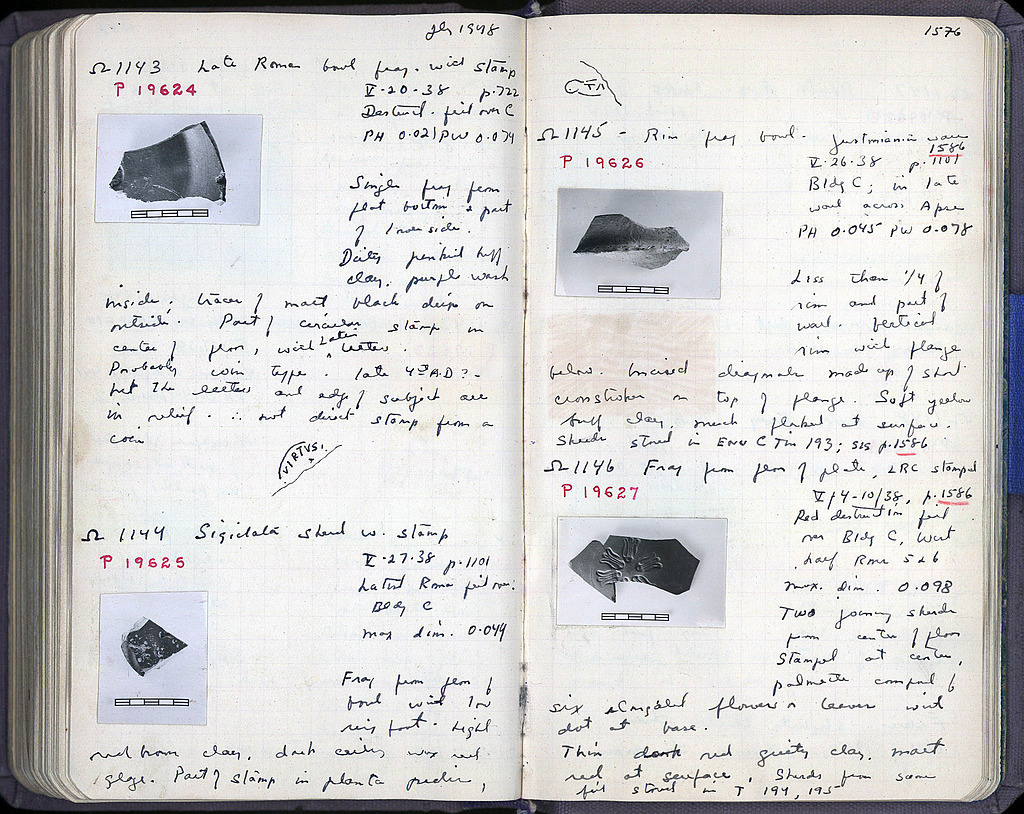 1948
Ω 1143 Late Roman bowl frag. with stamp
P 19624
V-20-38 p.722
Destruct. fill over C
PH 0.021 PW 0.079
Single frag from
flat bottom & part
of lower side.
Dirty pinkish buff
clay, purple wash
inside; traces of matt black drips on
outside. Part of circular stamp in
center of floor, with Latin letters.
Probably coin type. late 4th A.D.? -
but the letters and edge of subject are
in relief. ∴ not direct stamp from a
coin
VIRTVS
Ω 1144 Sigillata sherd w. stamp
P 19625
V-27-38 p.1101
Latest Roman fill over
Bldg C
max dim. 0.044
Frag from floor of
bowl with low
ring foot. Light
red brown clay, dark red
glaze. Part of stamp in planta pedis,
1576
CTA
Ω 1145 - Rim frag bowl. Justinianic ware
1586
P 19626
V-26-38 p.1101
Bldg C; in late
wall across Apse
PH 0.045 PW 0.078
Less than 1/4 of
rim and part of
wall. Vertical
rim with flange
below. Incised diagonals made up of short
crossstrokes on top of flange. Soft yellow
buff clay, much flaked at surface.
Sherds stored in C Tin 193; see p.1586
Ω 1146 Frag from floor of plate, LRC stamped
P 19627
V/4-10/38, p.1586
Red destruction fill
over Bldg C, West
half Rms 5 & 6
max. dim. 0.098
Two joining sherds
from center of floor
Stamped at center,
palmette composed of
six elongated flowers or leaves with
dot at base.
Thin dark red gritty clay, matt
red at surface. Sherds from same
fill stored in T 194, 195